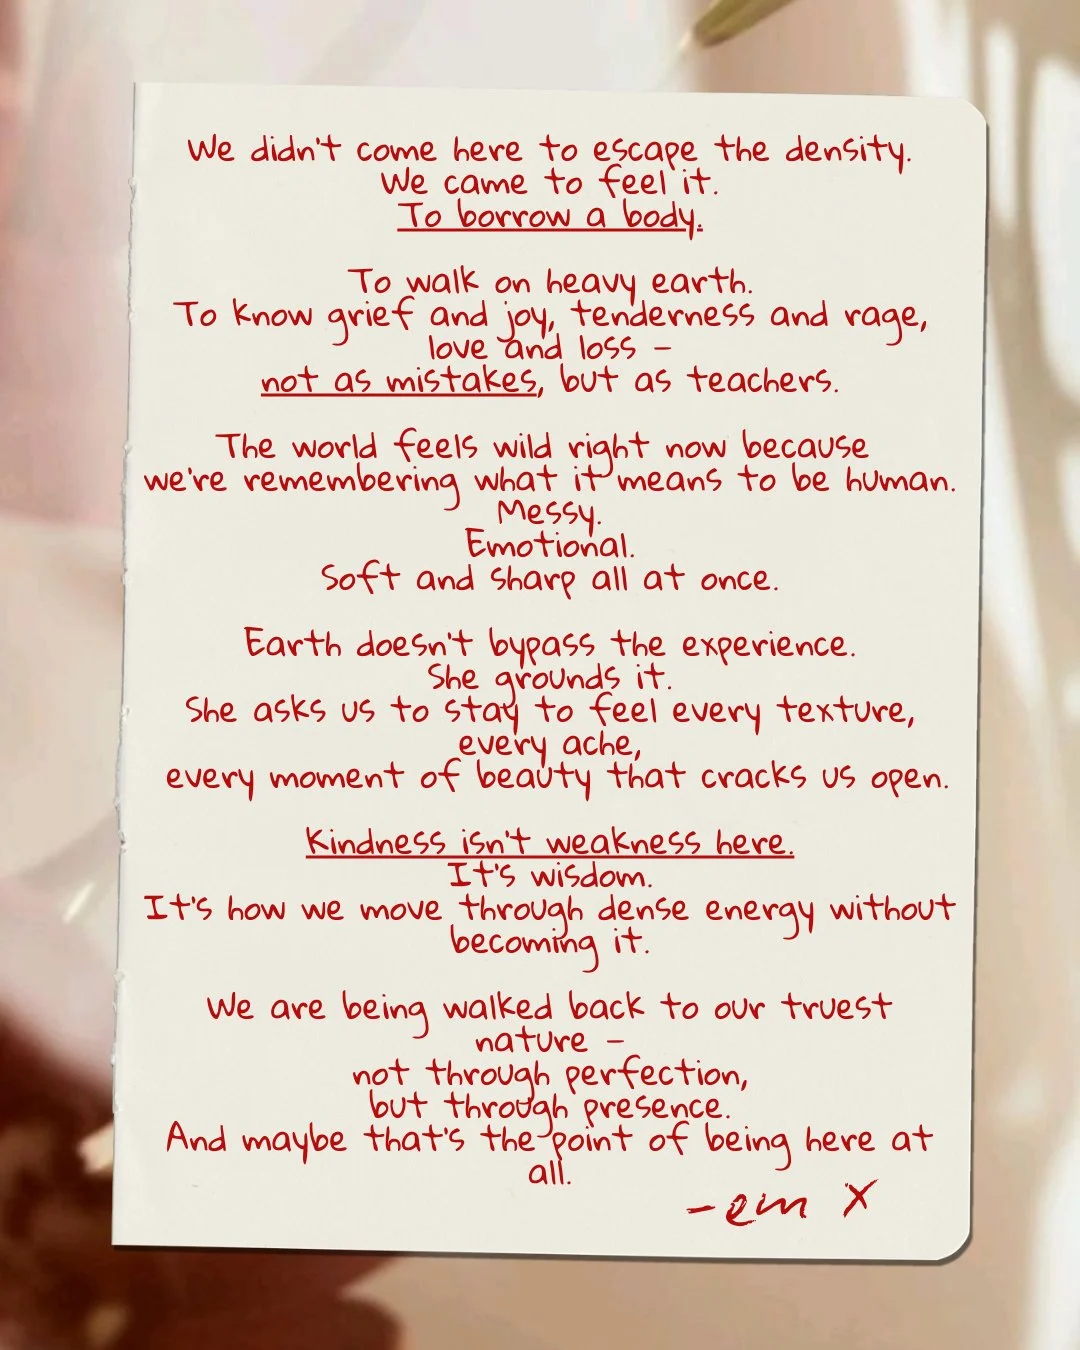 We didn't come here to escape the density.
We came to feel it.
To borrow a body.
To walk on heavy earth.
To know grief and joy, tenderness and rage,
love and loss –
not as mistakes, but as teachers.
The world feels wild right now because
we're remembering what it means to be human.
Messy.
Emotional.
Soft and sharp all at once.
Earth doesn't bypass the experience.
She grounds it.
She asks us to stay to feel every texture,
every ache,
every moment of beauty that cracks us open.
Kindness isn't weakness here.
It's wisdom.
It's how we move through dense energy without
becoming it.
We are being walked back to our truest
nature –
not through perfection,
but through presence.
And maybe that's the point of being here at
all.
-em x